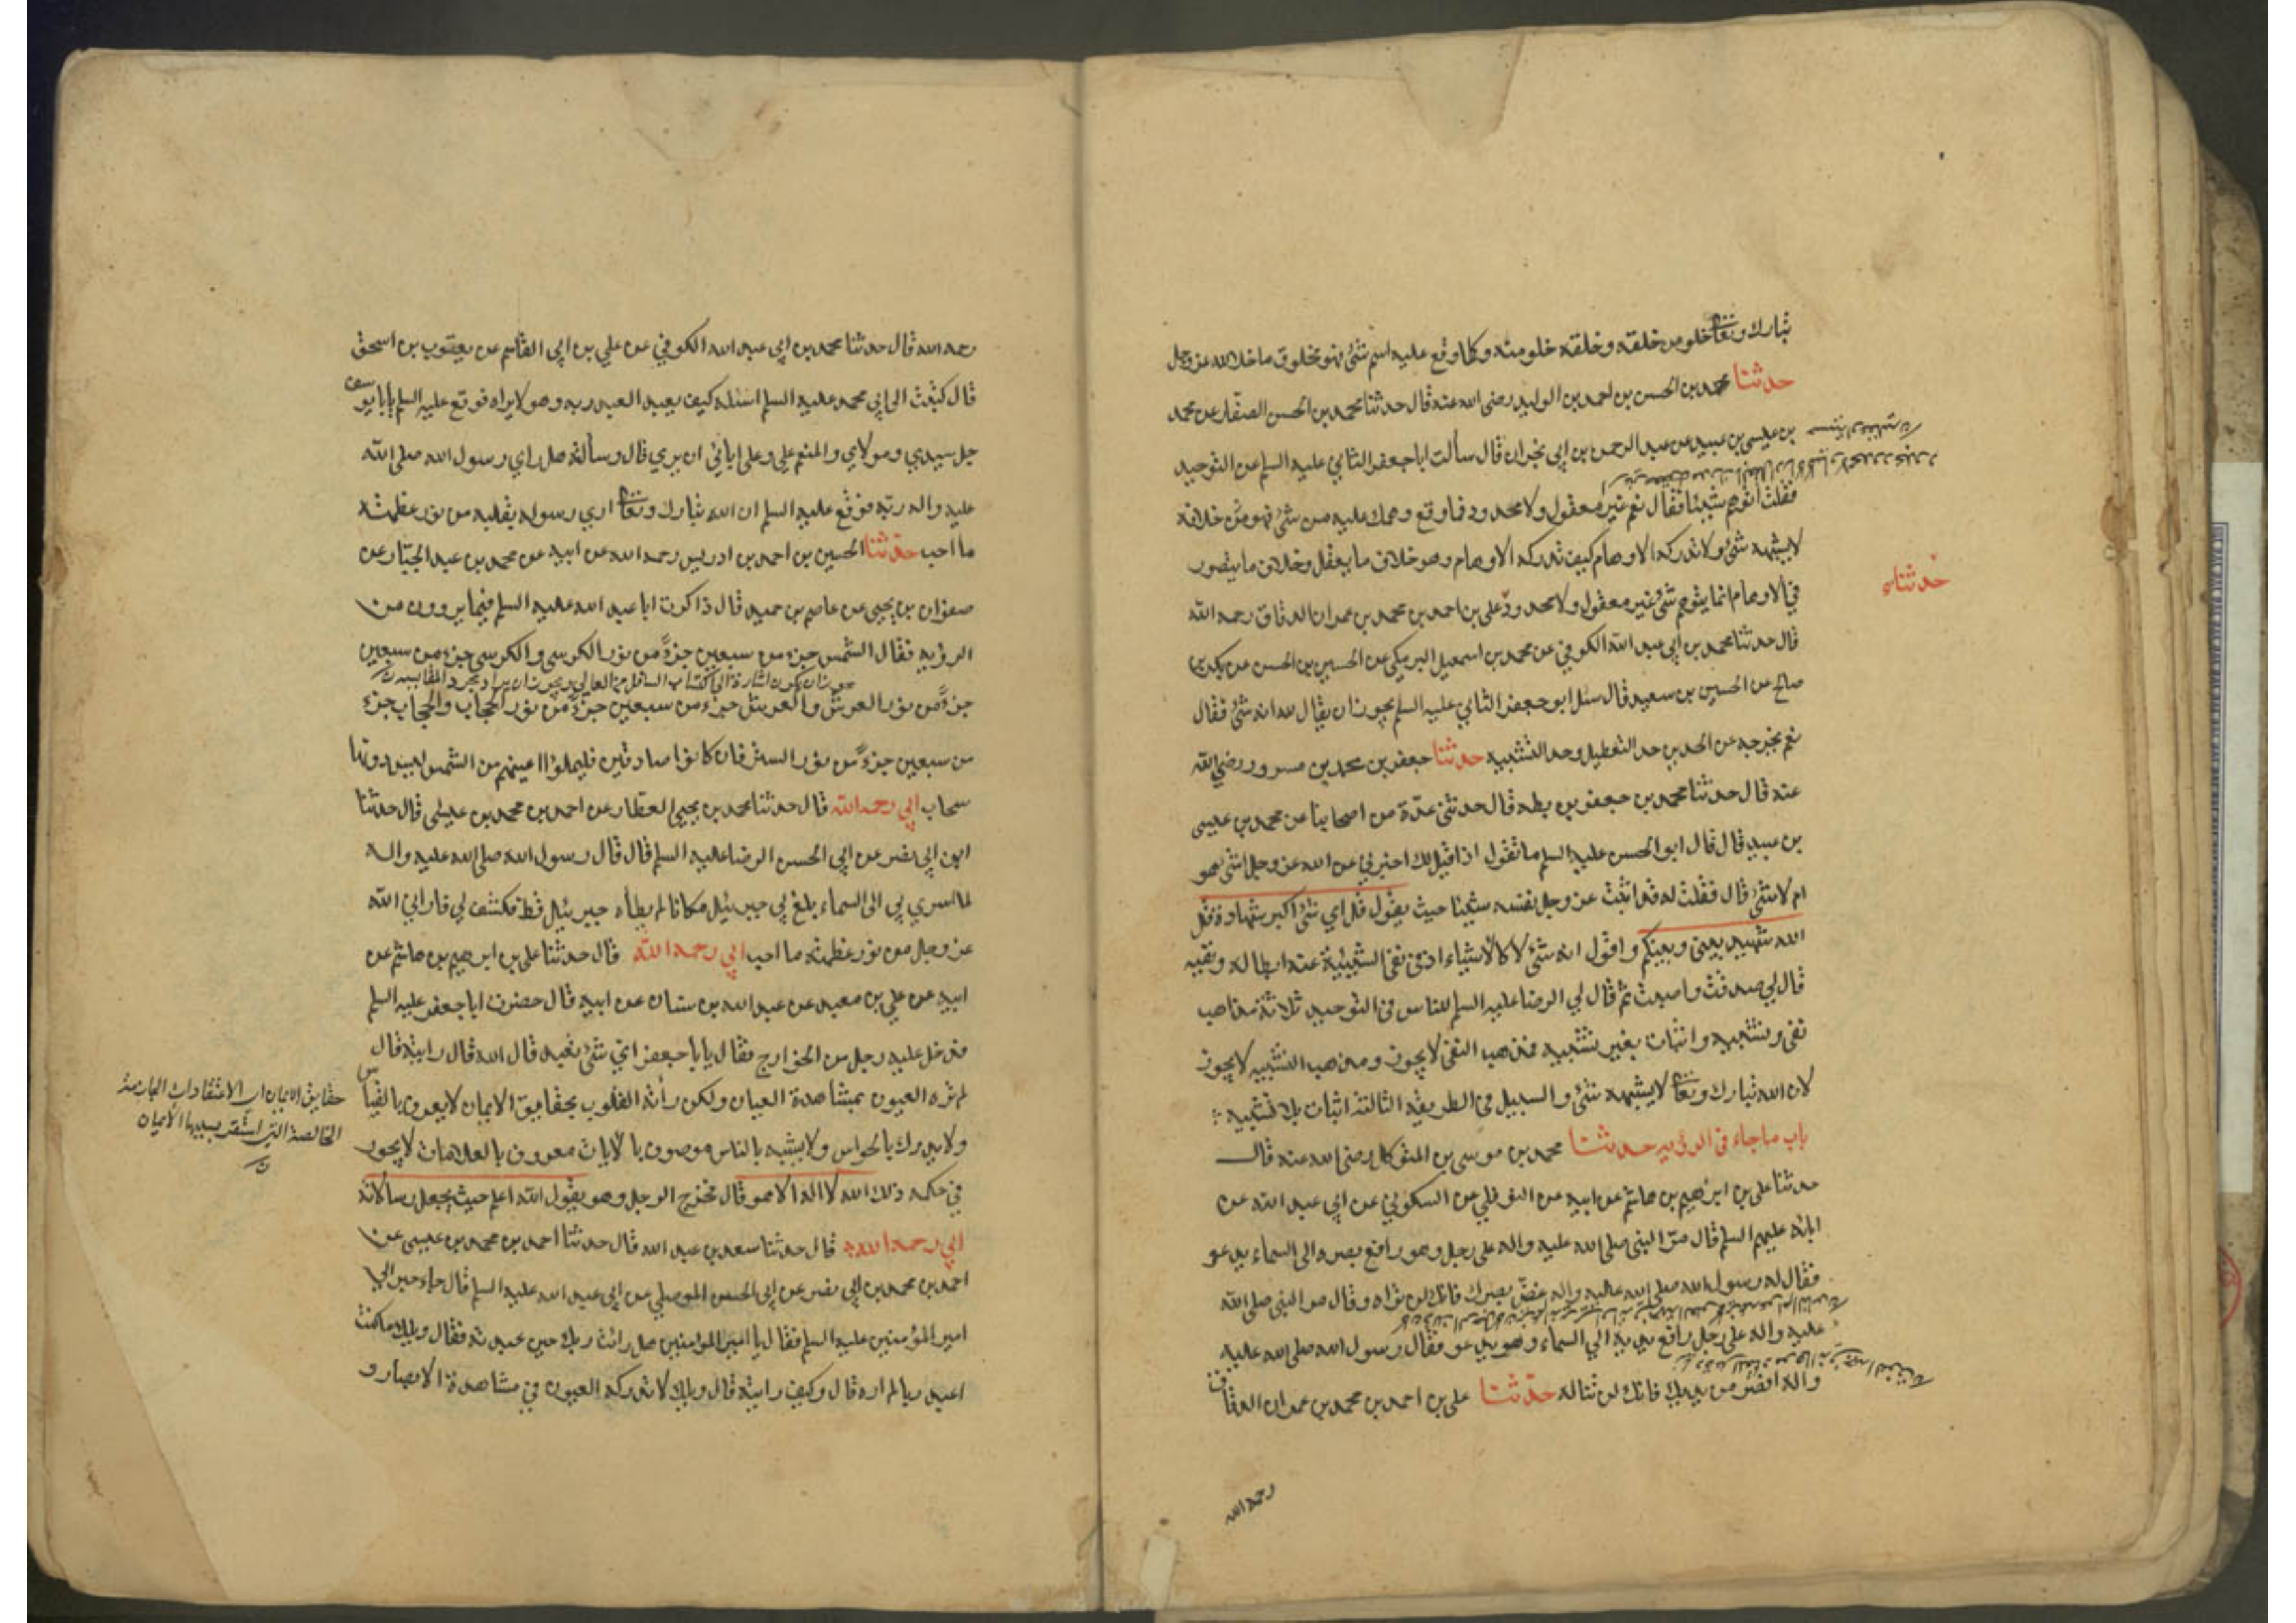 تبارك وتعالى خلو من خلقه وخلقه خلو منه وكلما وقع عليه اسم شئ فهو مخلوق ما خلا الله عز وجل
حدثنا محمد بن الحسن بن احمد بن الوليد رضى الله عنه قال حدثنا محمد بن الحسن الصفار عن محمد
بن عيسى بن عبيد عن عبد الرحمن بن ابي نجران قال سألت ابا جعفر الثاني عليه السلم عن التوحيد
فقلت اتوهم شيئا فقال نعم غير معقول ولا محدود فما وقع وهمك عليه من شئ فهو خلافه
لا يشبهه شئ ولا تدركه الاوهام كيف تدركه الاوهام وهو خلاف ما يعقل وخلاف ما يتصور
حدثنا
في الاوهام انما يتوهم شئ غير معقول ولا محدود علي بن احمد بن محمد بن عمران الدقاق رحمه الله
قال حدثنا محمد بن ابي عبد الله الكوفي عن محمد بن اسمعيل البرمكي عن الحسين بن الحسن عن بكر بن
صالح عن الحسين بن سعيد قال سئل ابو جعفر الثاني عليه السلم يجوز ان يقال لله انه شئ فقال
نعم يخرجه عن الحدين حد التعطيل وحد التشبيه حدثنا جعفر بن محمد بن مسرور رضي الله
عنه قال حدثنا محمد بن جعفر بن بطه قال حدثني عدّة من اصحابنا عن محمد بن عيسى
بن عبيد قال قال ابو الحسن عليه السلم ما تقول اذا قيل لك اخبرني عن الله عز وجل اشئ هو
ام لا شئ قال فقلت له قد اثبت عز وجل نفسه شيئا حيث يقول قل اي شئ اكبر شهادة قل
الله شهيد بيني وبينكم واقول انه شئ لا كالاشياء اذ في نفى الشيئية عنه ابطاله ونفيه
قال لي صدقت واصبت ثم قال لي الرضا عليه السلم للناس في التوحيد ثلاثة مذاهب
نفى وتشبيه واثبات بغير تشبيه فمذهب النفى لا يجوز ومذهب التشبيه لا يجوز
لان الله تبارك وتعالى لا يشبهه شئ والسبيل في الطريقة الثالثة اثبات بلا تشبيه
باب ما جاء في الرؤيه حدثنا محمد بن موسى بن المتوكل رضى الله عنه قال
حدثنا علي بن ابرهيم بن هاشم عن ابيه عن النوفلي عن السكوني عن ابي عبد الله عن
ابائه عليهم السلم قال مرّ النبي صلى الله عليه واله على رجل وهو رافع بصره الى السماء يدعو
فقال له رسول الله صلى الله عليه واله غضّ بصرك فانك لن تراه وقال مر النبي صلى الله
عليه واله على رجل رافع يديه الي السماء وهو يدعو فقال رسول الله صلى الله عليه
واله اقصر من يديك فانك لن تناله حدثنا علي بن احمد بن محمد بن عمران الدقاق
رحمه الله
رحمه الله قال حدثنا محمد بن ابي عبد الله الكوفي عن علي بن ابي القاسم عن يعقوب بن اسحق
قال كتبت الى ابي محمد عليه السلم اسئله كيف يعبد العبد ربه وهو لا يراه فوقع عليه السلم يابا يوسف
جل سيدي ومولاي والمنعم علي وعلى ابائي ان يري قال وسألته هل راي رسول الله صلى الله
عليه واله ربّه فوقّع عليه السلم ان الله تبارك وتعالى اري رسوله بقلبه من نور عظمته
ما احب حدثنا الحسين بن احمد بن ادريس رحمه الله عن ابيه عن محمد بن عبد الجبّار عن
صفوان بن يحيى عن عاصم بن حميد قال ذاكرت ابا عبد الله عليه السلم فيما يروون من
الرؤيه فقال الشمس جزء من سبعين جزءً من نور الكرسي والكرسي جزء من سبعين
يجوز ان يكون اشارة الى اكتساب السافل من العالي ويجوز ان يراد مجرد المقايسه
جزءً من نور العرش والعرش جزء من سبعين جزءً من نور الحجاب والحجاب جزء
من سبعين جزءً من نور الستر فان كانوا صادقين فليملؤا اعينهم من الشمس ليس دونها
سحاب ابي رحمه الله قال حدثنا محمد بن يحيى العطار عن احمد بن محمد بن عيسى قال حدثنا
ابن ابي نصر عن ابي الحسن الرضا عليه السلم قال قال رسول الله صلى الله عليه واله
لما اسري بي الى السماء بلغ بي جبرئيل مكانا لم يطأه جبرئيل قط فكشف لي فاراني الله
عز وجل من نور عظمته ما احب ابي رحمه الله قال حدثنا علي بن ابرهيم بن هاشم عن
ابيه عن علي بن معبد عن عبد الله بن سنان عن ابيه قال حضرت ابا جعفر عليه السلم
فدخل عليه رجل من الخوارج فقال يابا جعفر اي شئ تعبد قال الله قال رايته قال
لم تره العيون بمشاهدة العيان ولكن رأته القلوب بحقايق الايمان لا يعرف بالقياس
ولا يدرك بالحواس ولا يشبه بالناس موصوف بالايات معروف بالعلامات لا يجور
في حكمه ذلك الله لا اله الا هو قال فخرج الرجل وهو يقول الله اعلم حيث يجعل رسالاته
ابي رحمه الله قال حدثنا سعد بن عبد الله قال حدثنا احمد بن محمد بن عيسى عن
احمد بن محمد بن ابي نصر عن ابي الحسن الموصلي عن ابي عبد الله عليه السلم قال جاء حبر الي
امير المؤمنين عليه السلم فقال يا امير المؤمنين هل رايت ربك حين عبدته فقال ويلك ما كنت
اعبد ربا لم اره قال وكيف رايته قال ويلك لا تدركه العيون في مشاهدة الابصار و
حقايق الايمان اي الاعتقادات الجازمة
الخالصة التي استقر بسببها الايمان